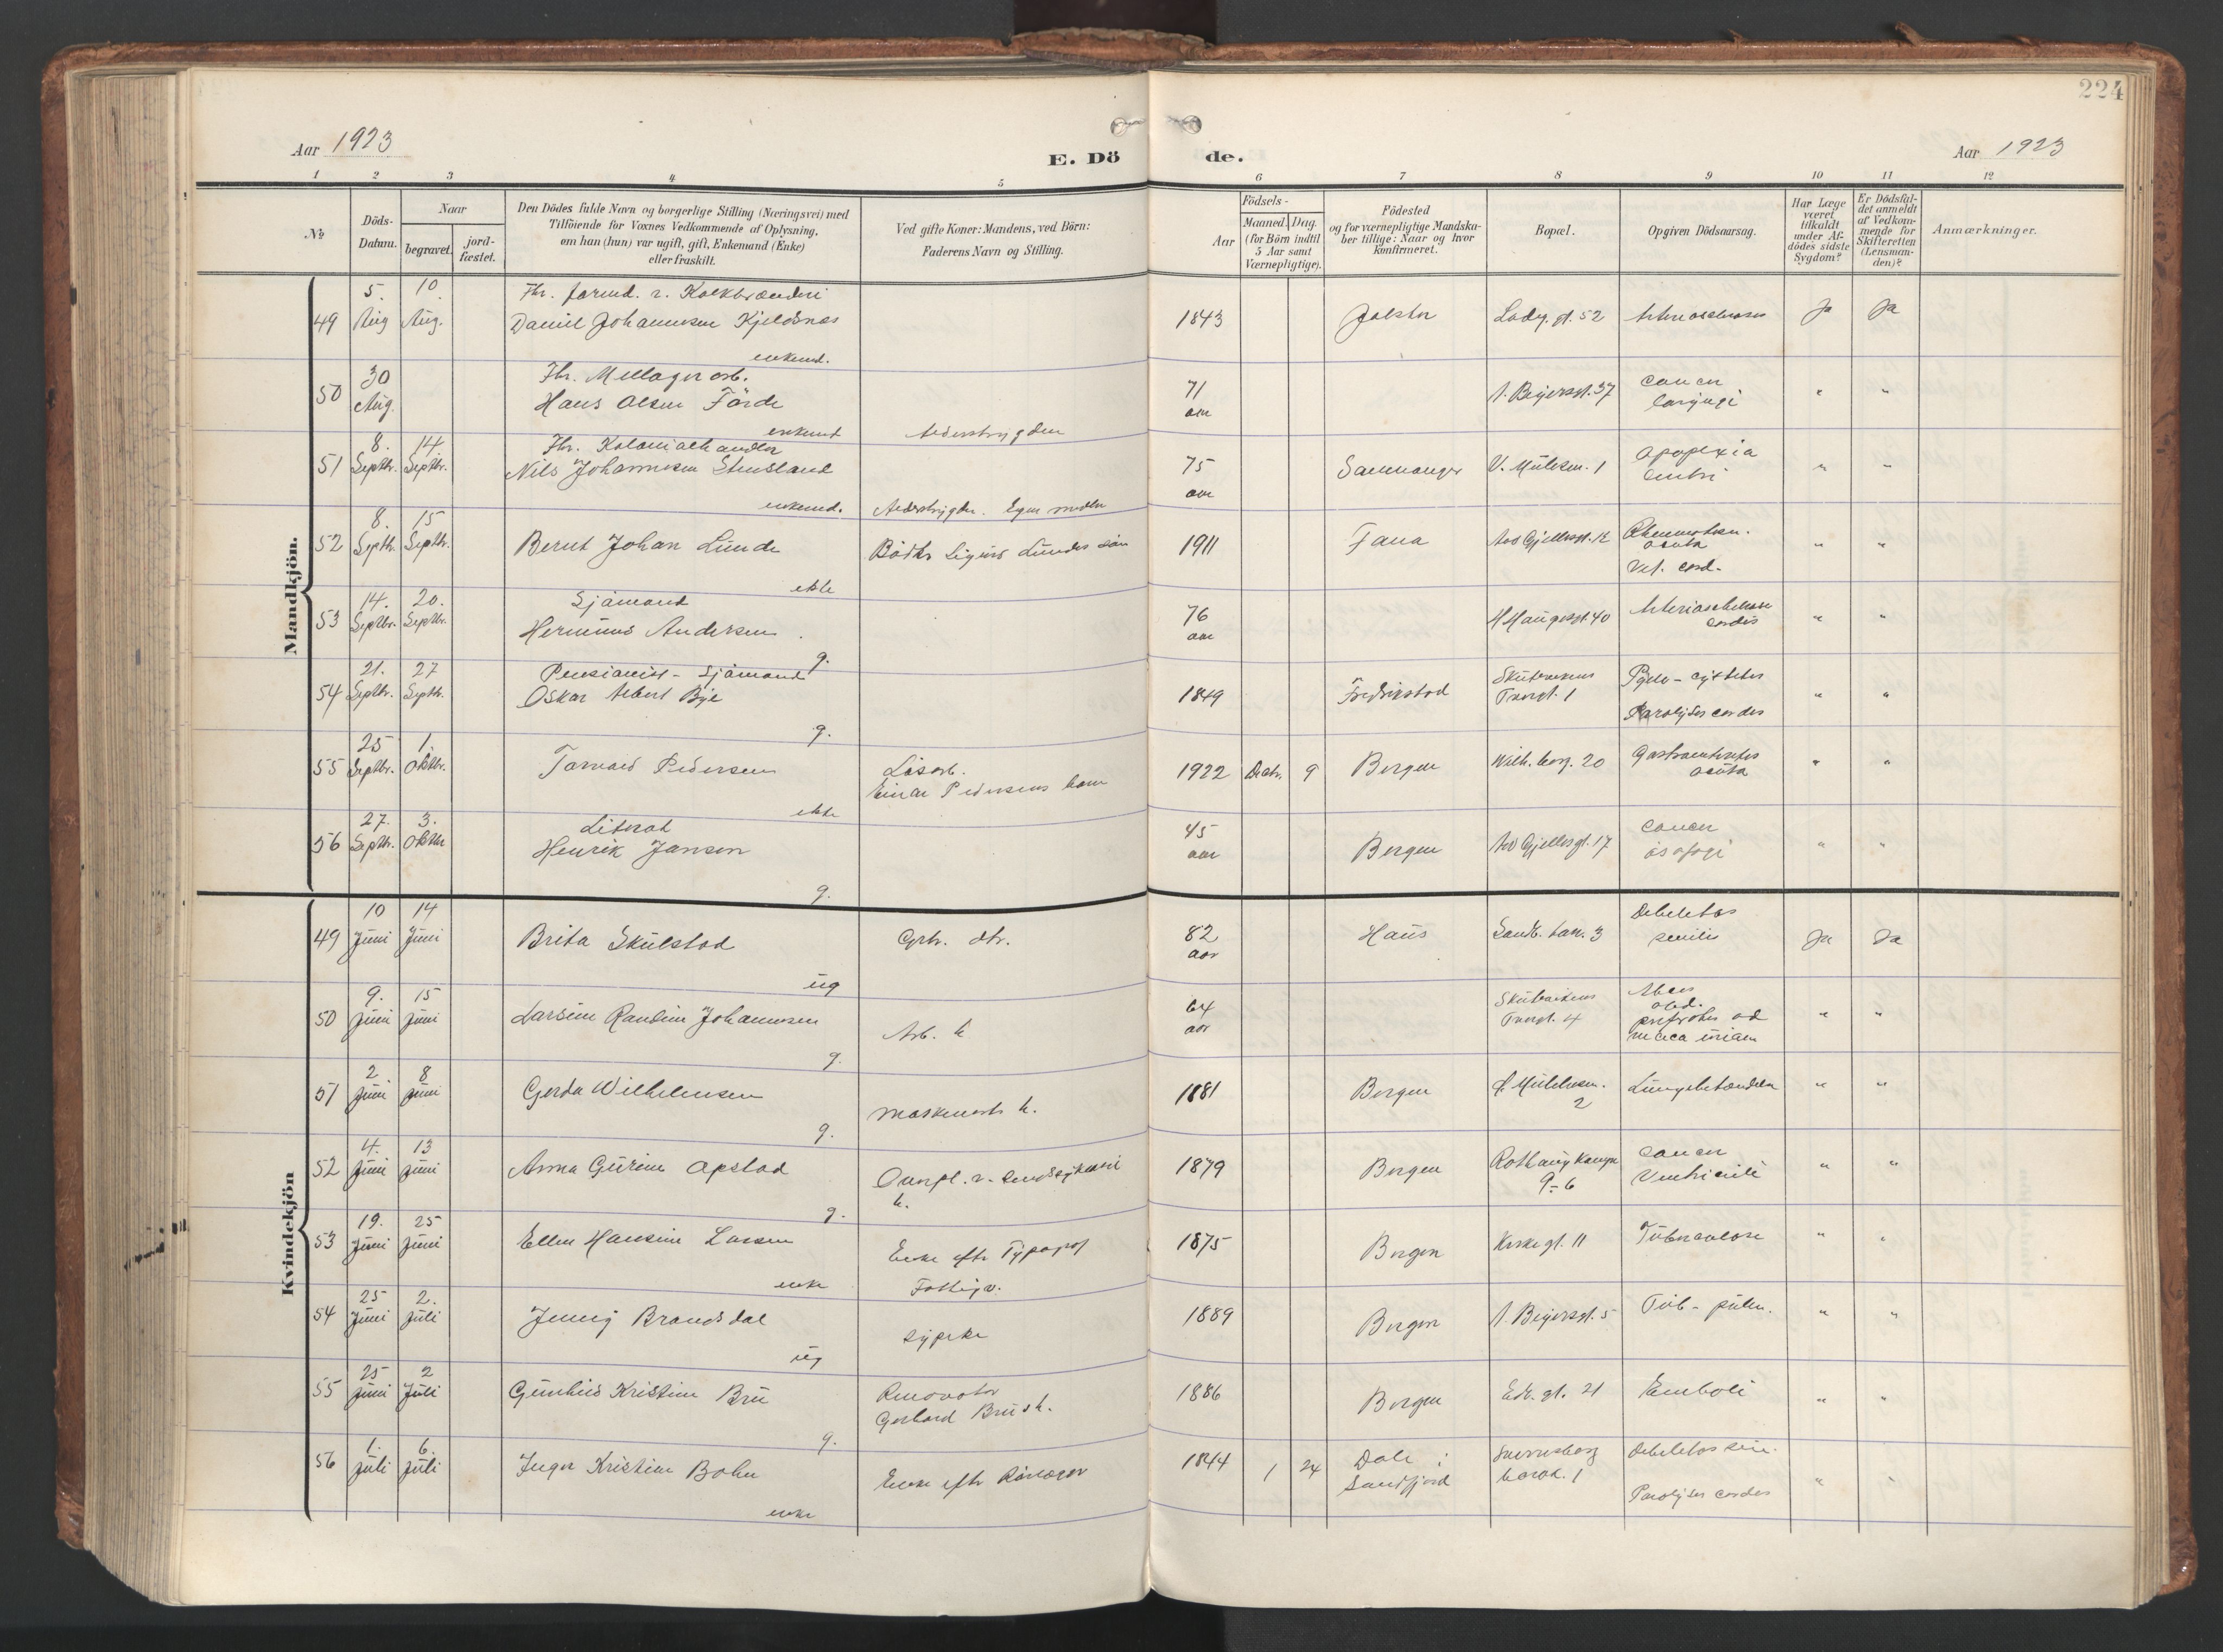 224
Aar 1923
E. Dö
de.
Aar 1923
1 2 3 4 5 6 7 8 9 10 11 12
No
Döds-Datum.
Naar
begravet.
jord-fæstet.
Den Dödes fulde Navn og borgerlige Stilling (Næringsvei) med
Tilföiende for Voxnes Vedkommende af Oplysning,
om han (hun) var ugift, gift, Enkemand (Enke)
eller fraskilt.
Ved gifte Koner: Mandens, ved Börn:
Faderens Navn og Stilling.
Födsels-
Aar
Maaned. Dag.
(for Börn indtil
5 Aar samt
Værnepligtige).
Födested
og for værnepligtige Mandska-
ber tillige: Naar og hvor
konfirmeret.
Bopæl.
Opgiven Dödsaarsag.
Har Læge
været
tilkaldt
under Af-
dödes sidste
Sygdom?
Er Dödsfal-
det anmeldt
af Vedkom-
mende for
Skifteretten
(Lensman-
den)?
Anmærkninger.
Mandkjön.
49 5. Aug 10. Aug. Fhr. formd. v. Kalkbrænderi
Daniel Johannesen Kjeldsnes
enkemd.
1843 Jølster Ladeg. gt. 52 Arterioschlerosis Ja Ja
50 30 Aug. Fhr. Mellagerarb.
Hans Olsen Förde
enkemt Alderstrygden
71 aar A. Beyersgt. 37 Cancer laryngi " "
51 8. Septbr. 14 Septbr. Fhr. Kolonialhandler
Nils Johannesen Stensland
enkemd. Alderstrygden. Egne midler
75 aar Samnanger V. Mülesm. 1 Apoplexia cerebri " "
52 8. Septbr. 15 Septbr. Bernt Johan Lunde
ekte
Bödker Sigurd Lundes sön
1911 Fana Aad Gjellesgt. 12 Rheumatism. acuta
Vit. cord. " "
53 14. Septbr. 20. Septbr. Sjömand
Herminus Andersen
g.
76 aar H Haugesgt. 40 Arterioschlerose cordis " "
54 21. Septbr. 27 Septbr. Pensionist - Sjömand
Oskar Albert Bye
g.
1849 Fredrikstad Skutevikens Tverrgt. 1 Pyelo - cystitis
Paralysis cordis " "
55 25 Septbr. 1. Oktbr. Torvald Pedersen
ekte
Lösarb.
Einar Pedersens barn
1922 Decbr. 9 Bergen Wilh. berg. 20 Gastroenteritis acuta " "
56 27. Septbr. 3. Oktbr Literat
Henrik Jansen
g.
45 aar Bergen Aad Gjellesgt. 17 Cancer ösofagi " "
Kvindekjön
49 10 Juni 14 Juni Brita Skulstad
ug
Grbr. dtr.
82 aar Haus Sandv. tan. 3 Debilitas senilis Ja Ja
50 9. Juni 15 Juni Larsine Randine Johannesen
g.
Arb. h
64 aar Skutevikens Tverrgt. 4 " "
51 2 Juni 8 Juni Gerda Wilhelmsen
g.
Maskinarb h.
1881 Bergen 2 Lungebetændelse " "
52 4. Juni 13 Juni Anna Gurine Opstad
g.
h.
1879 Bergen Rothaugkaupa 9-6 Cancer Ventriculi " "
53 19. Juni 25 Juni Ellen Hansine Larsen
enke
Enke efter Typograf
Fattigv.
1875 Bergen Kirkegt. 11 Tuberculose " "
54 25 Juni 2. Juli Jenny Brandsdal
ug
syerske
1889 Bergen A. Beyersgt. 5 Tub - pulm. " "
55 25 Juni 2 Juli Gunhild Kristine Bru
g.
Renovatör
Gerhard Brus h.
1886 Bergen Edv. gt. 21 Emboli " "
56 1. Juli 6. Juli Inger Kristine Bohn
enke
1844 1 24 Dale i Sandfjord 1 Debilitas sen.
Paralysis cordis " "